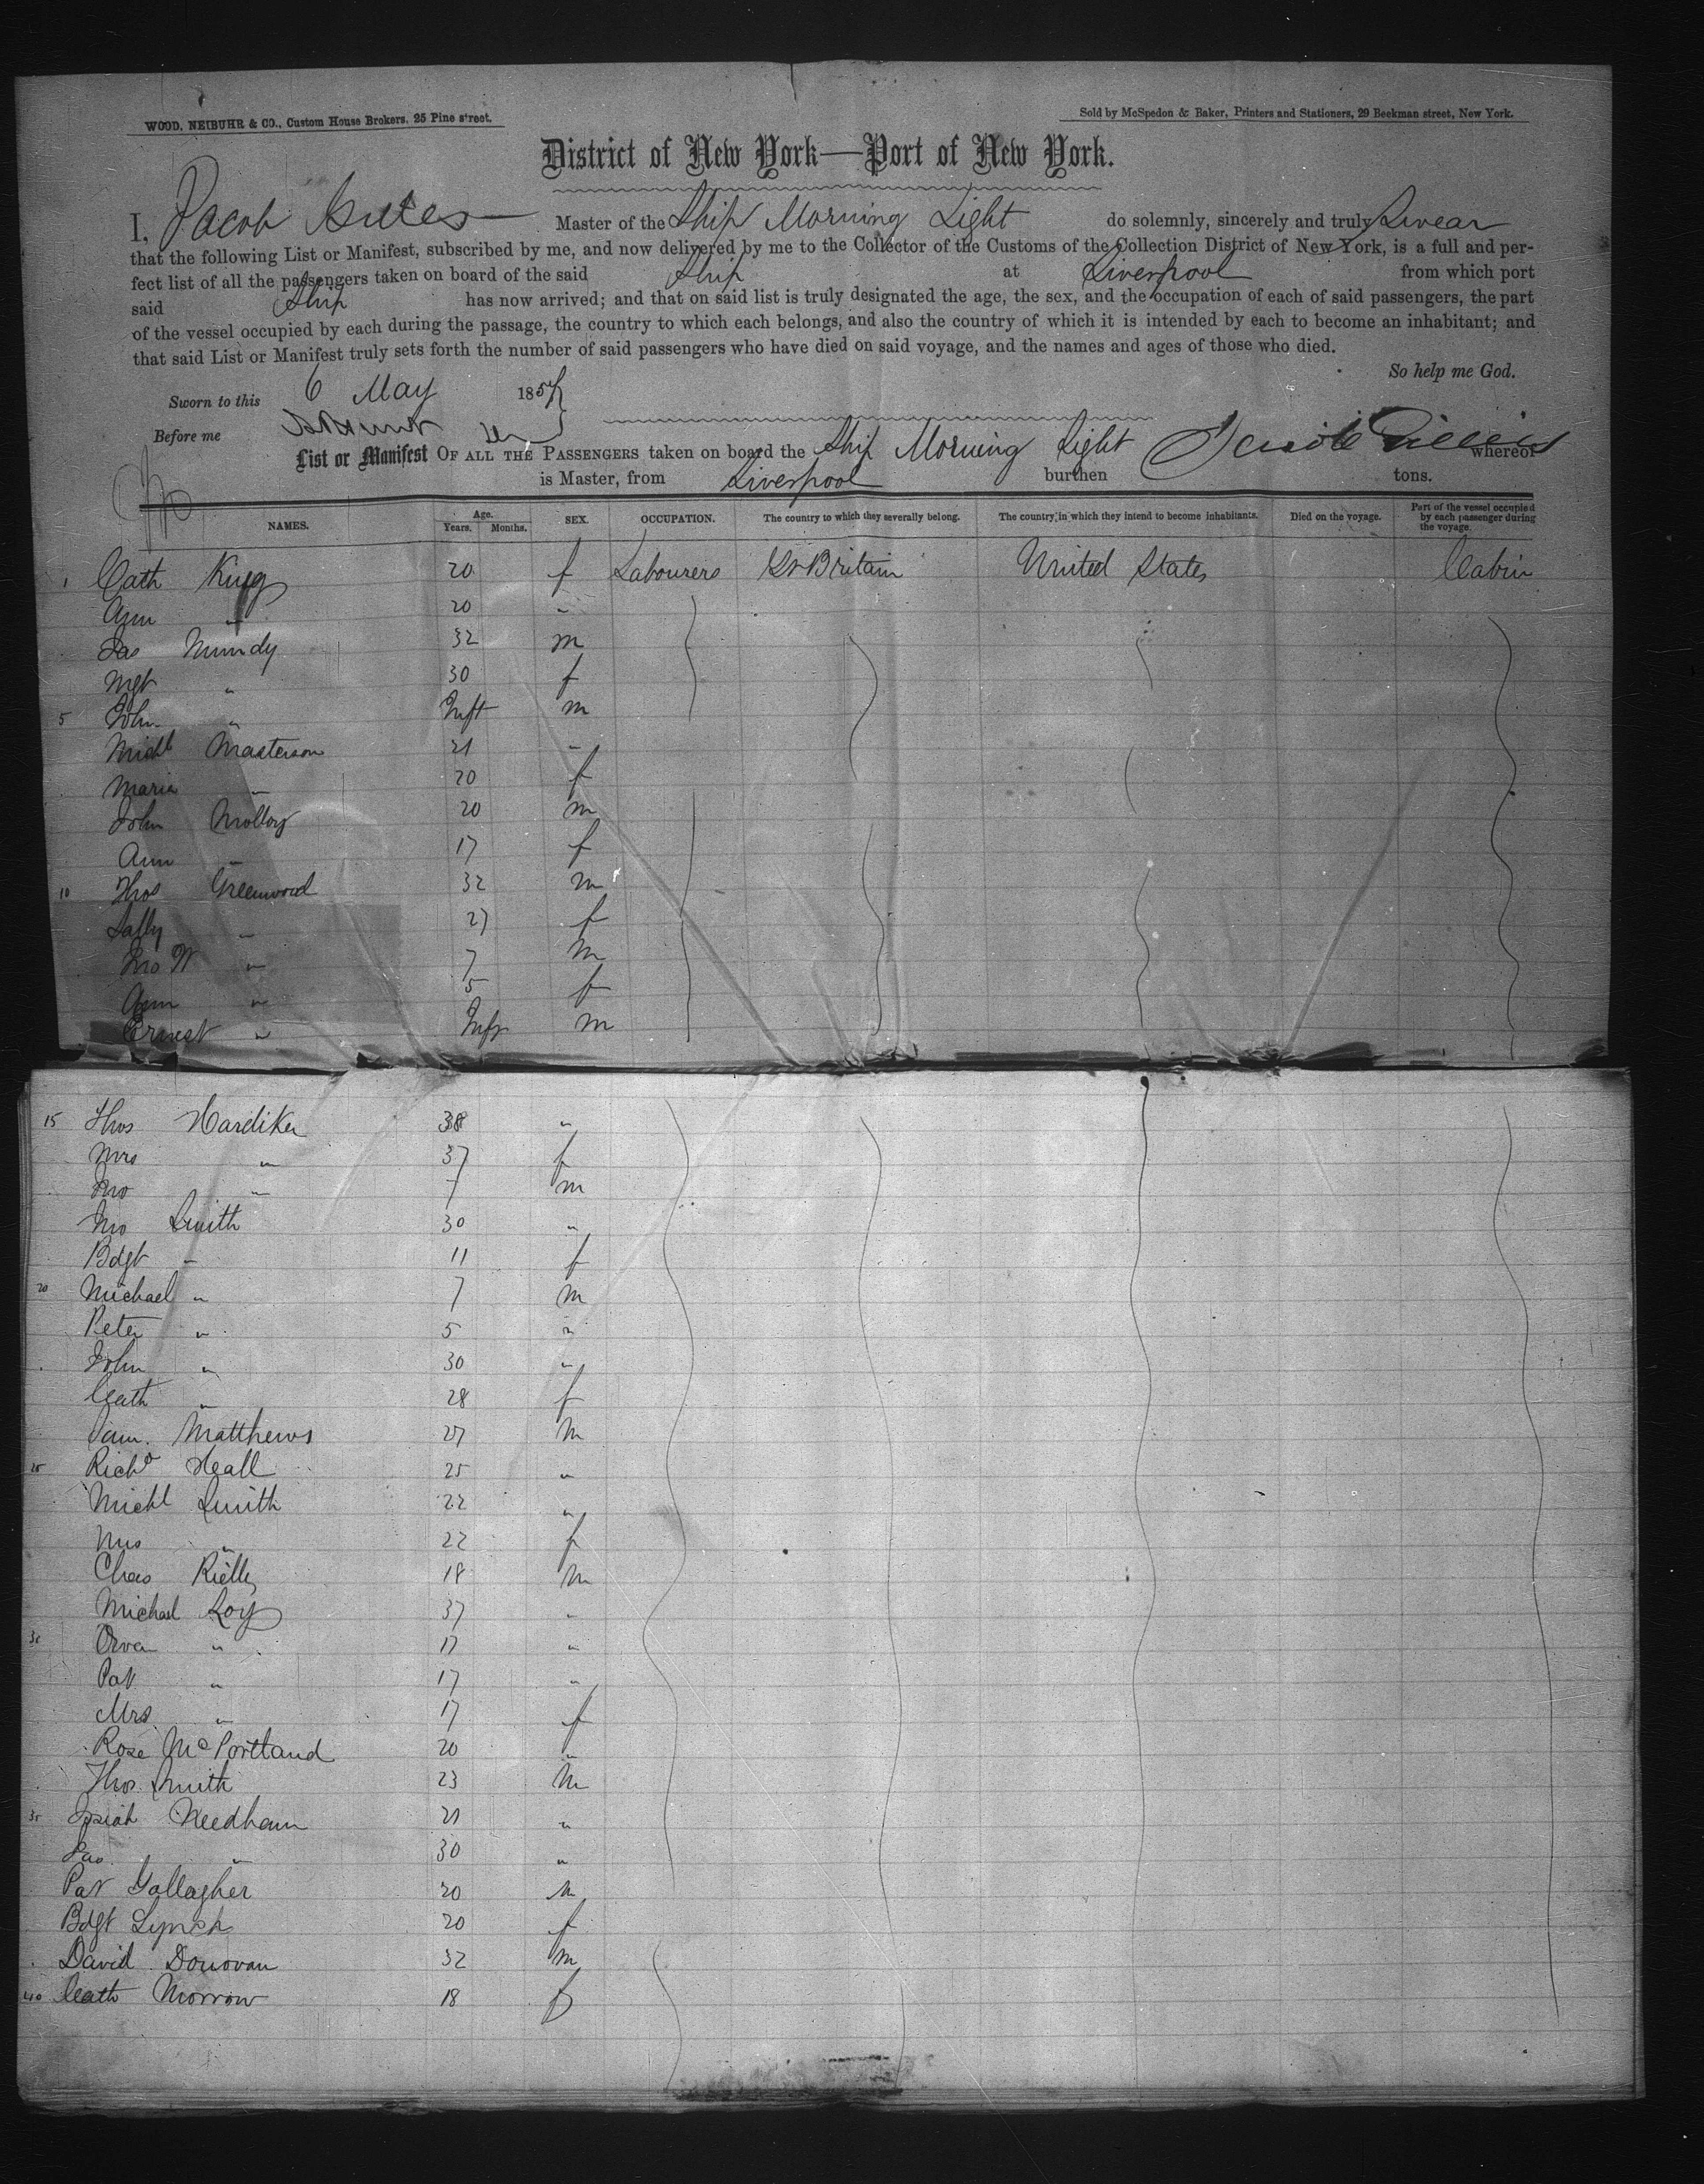 WOOD, NEIBUHR & CO., Custom House Brokers, 25 Pine street.
Sold by McSpedon & Baker, Printers and Stationers, 29 Beekman street, New York.
District of New York—Port of New York.
I, Jacob Master of the Ship Morning Light do solemnly, sincerely and truly Swear
that the following List or Manifest, subscribed by me, and now delivered by me to the Collector of the Customs of the Collection District of New York, is a full and per-
fect list of all the passengers taken on board of the said Ship at Liverpool from which port
said Ship has now arrived; and that on said list is truly designated the age, the sex, and the occupation of each of said passengers, the part
of the vessel occupied by each during the passage, the country to which each belongs, and also the country of which it is intended by each to become an inhabitant; and
that said List or Manifest truly sets forth the number of said passengers who have died on said voyage, and the names and ages of those who died.
So help me God.
Sworn to this 6 May 185
Before me
List or Manifest OF ALL THE PASSENGERS taken on board the Ship Morning Light whereof
is Master, from Liverpool burthen tons.
NAMES. Age. Years. Months. SEX. OCCUPATION. The country to which they severally belong. The country in which they intend to become inhabitants. Died on the voyage. Part of the vessel occupied by each passenger during the voyage.
1 Cath King 20 f Labourers Gt Britain United States Cabin
Ann " 20 "
Jas Mundy 32 m
Mgt " 30 f
5 John " Inft m
Michl Masterson 21 "
Maria " 20 f
John Molloy 20 m
Ann " 17 f
10 Thos Greenwood 32 m
Sally " 27 f
Jno W " 7 m
Ann " 5 f
Ernest " Inft m
15 Thos Hardiker 38 "
Mrs " 37 f
Jno " 7 m
Jno Smith 30 "
Bdgt " 11 f
20 Michael " 7 m
Peter " 5 "
John " 30 "
Cath " 28 f
Sam. Matthews 27 m
25 Richd Heall 25 "
Michl Smith 22 "
Mrs " 22 f
Chas Rielly 18 m
Michael Roy 37 "
30 " 17 "
Pat " 17 "
Mrs " 17 f
Rose McPortland 20 "
Thos Smith 23 m
35 Josiah Needham 21 "
Jas " 30 "
Pat Gallagher 20 m
Bdgt Lynch 20 f
David Donovan 32 m
40 Cath Morrow 18 f